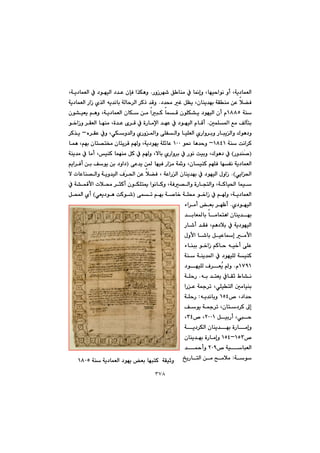 العمادية، أو نواحيها، وإنما في مناطق شهرزور. وهكذا فإن عدد اليهود في العمادية،
فضلا عن منطقة بهدينان، يظل غير محدد. وقد ذكر الرحالة بانديه الذي زار العمادية
سنة ١٨٨٥م أن اليهود يشكلون قسماً كبيراً من سكان العمادية، وهم يعيشون
بتآلف مع المسلمين. أقام اليهود في عهد الإمارة في قرى عدة، منها العقر وزاخو
ودهوك والزيبار وبرواري العليا والسفلى والمزوري والدوسكي، وفي عقره- يذكر
كرانت سنة ١٨٤١- وحدها نحو ١٠٠ عائلة يهودية، ولهم قريتان مختصتان بهم، هما
(صندور) في دهوك، وبيت نور في برواري بالا، ولهم في كل منهما كنيس، أما في مدينة
العمادية نفسها فلهم كنيسان، وثمة مزار فيها لمن يدعى (داود بن يوسف بن أفرايم
الحزاني). زاول اليهود في بهدينان الزراعة، فضلا عن الحرف اليدوية والصناعات لا
سيما الحياكة، والتجارة والصيرفة، وكانوا يمتلكون أكثر محلات الأقمشة في
العمادية، ولهم في زاخو محلة خاصة بهم تسمى (شوكت هوديعي) أي المحل
اليهودي. أظهر بعض أمراء
بهدينان اهتماما بالمعابد
اليهودية في بلادهم، فقد أشار
الأمير إسماعيل باشا الأول
على أخيه حاكم زاخو ببناء
كنيسة لليهود في المدينة سنة
١٧٩١م. ولم يُعرف لليهود
نشاط ثقافي يعتد به. رحلة
بنيامين التطيلي، ترجمة عزرا
حداد، ص١٥٤ وبانديه: رحلة
إلى كردستان، ترجمة يوسف
حبي، أربيل ٢٠٠١، ص٣٤،
وإمارة بهدينان الكردية
ص١٥٣-١٥٤ وإمارة بهدينان
العباسية ص٢٠٩ وأحمد
سوسة: ملامح من التاريخ
وثيقة كتبها بعض يهود العمادية سنة ١٨٠٥
٣٧٨